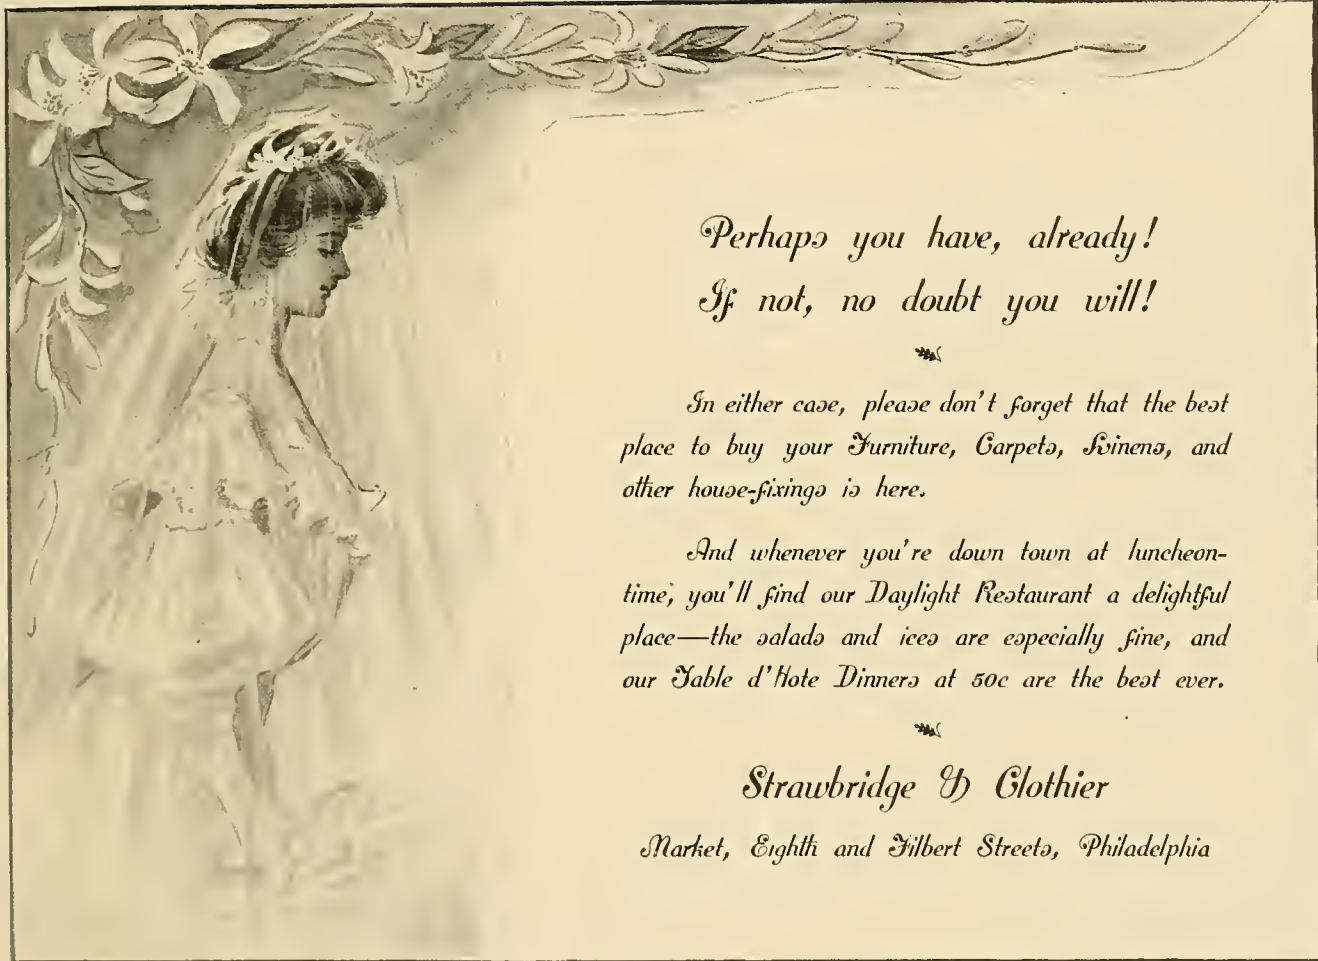 Perhaps you have, already!
If not, no doubt you will!
In either case, please don't forget that the best
place to buy your Furniture, Carpets, Linens, and
other house-fixings is here.
And whenever you're down town at luncheon-
time, you'll find our Daylight Restaurant a delightful
place—the salads and ices are especially fine, and
our Table d'Hote Dinners at 50c are the best ever.
Strawbridge & Clothier
Market, Eighth and Filbert Streets, Philadelphia